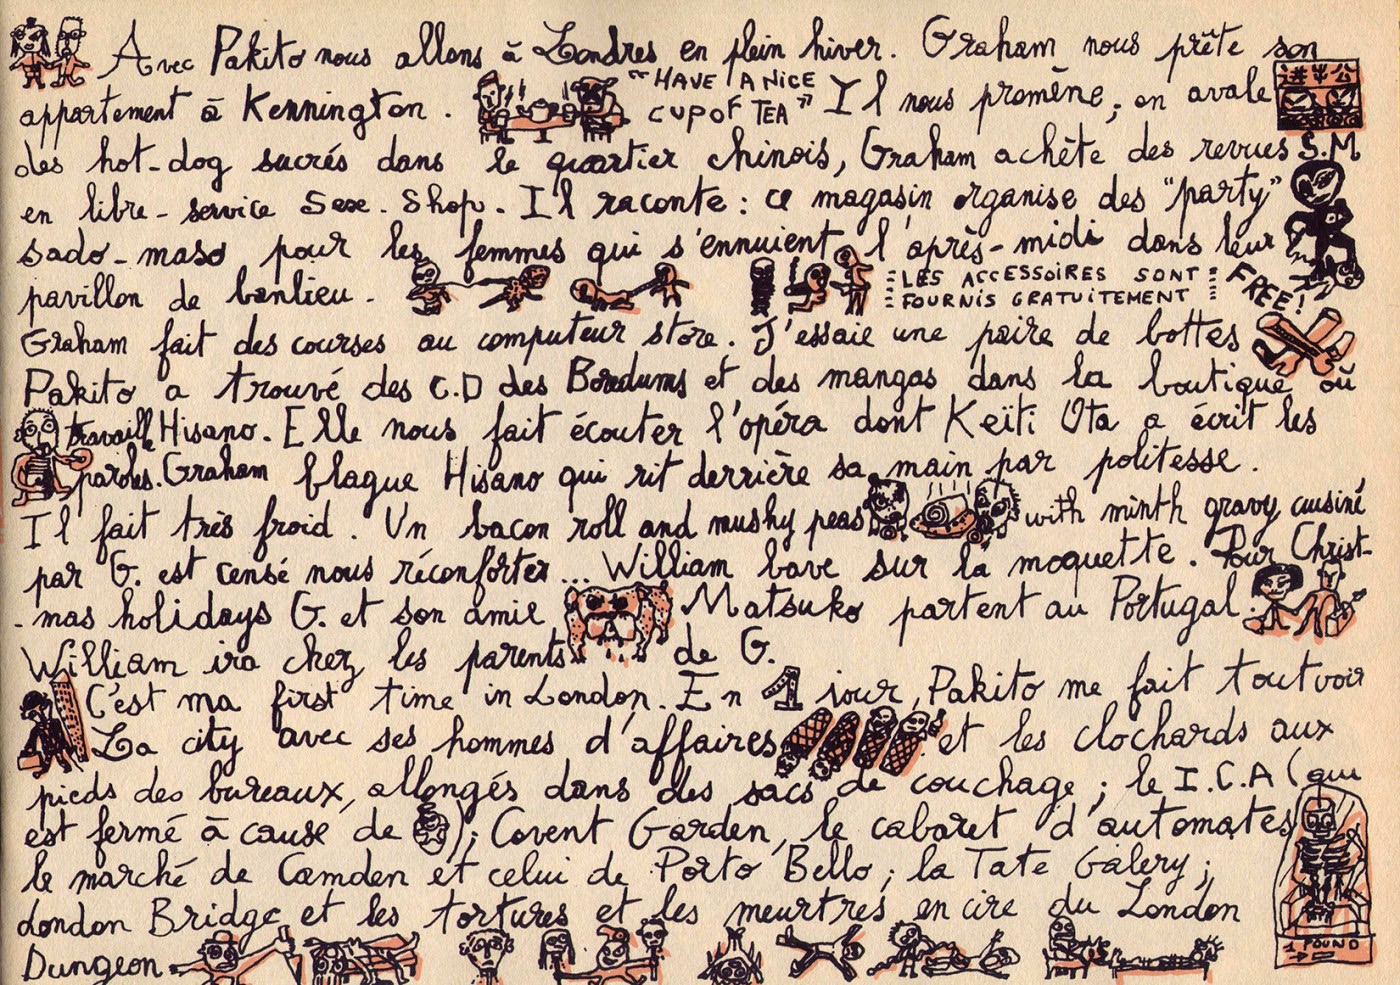 Avec Pakito nous allons à Londres en plein hiver. Graham nous prête son
appartement à Kennington. "HAVE A NICE
CUP OF TEA" Il nous promène, on avale
des hot-dog sucrés dans le quartier chinois, Graham achète des revues S.M
en libre-service Sexe-Shop. Il raconte : ce magasin organise des "party"
sado-maso pour les femmes qui s'ennuient l'après-midi dans leur
pavillon de banlieu. LES ACCESSOIRES SONT
FOURNIS GRATUITEMENT FREE!
Graham fait des courses au computeur store. J'essaie une paire de bottes
Pakito a trouvé des C.D des Boredums et des mangas dans la boutique où
travaille Hisano. Elle nous fait écouter l'opéra dont Keïti Ota a écrit les
paroles. Graham blague Hisano qui rit derrière sa main par politesse.
Il fait très froid. Un bacon roll and mushy peas with minth gravy cuisiné
par G. est censé nous réconforter... William bave sur la moquette. Pour Christ-
-mas holidays G. et son amie Matsuko partent au Portugal.
William ira chez les parents de G.
C'est ma first time in London. En 1 jour, Pakito me fait tout voir
La city avec ses hommes d'affaires et les clochards aux
pieds des bureaux, allongés dans des sacs de couchage ; le I.C.A (qui
est fermé à cause de ); Covent Garden, le cabaret d'automates
le marché de Camden et celui de Porto Bello ; la Tate Galery ;
london Bridge et les tortures et les meurtres en cire du London
Dungeon.
1 POUND